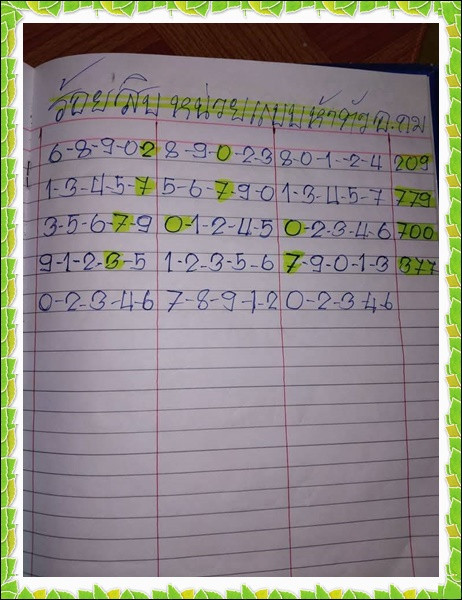 ร้อยสิบหน่วยแบบห้าตัวอ.ถม
6-8-9-0-2 8-9-0-2-3 8-0-1--2-4 209
1-3-4-5-7 5-6-7-9-0 1-3-4-5-7 779
3-5-6-7-9 0-1-2-4-5 0-2-3-4-6 700
9-1-2-3-5 1-2-3-5-6 7-9-0-1-3 377
0-2-3-4-6 7-8-9-1-2 0-2-3-4-6